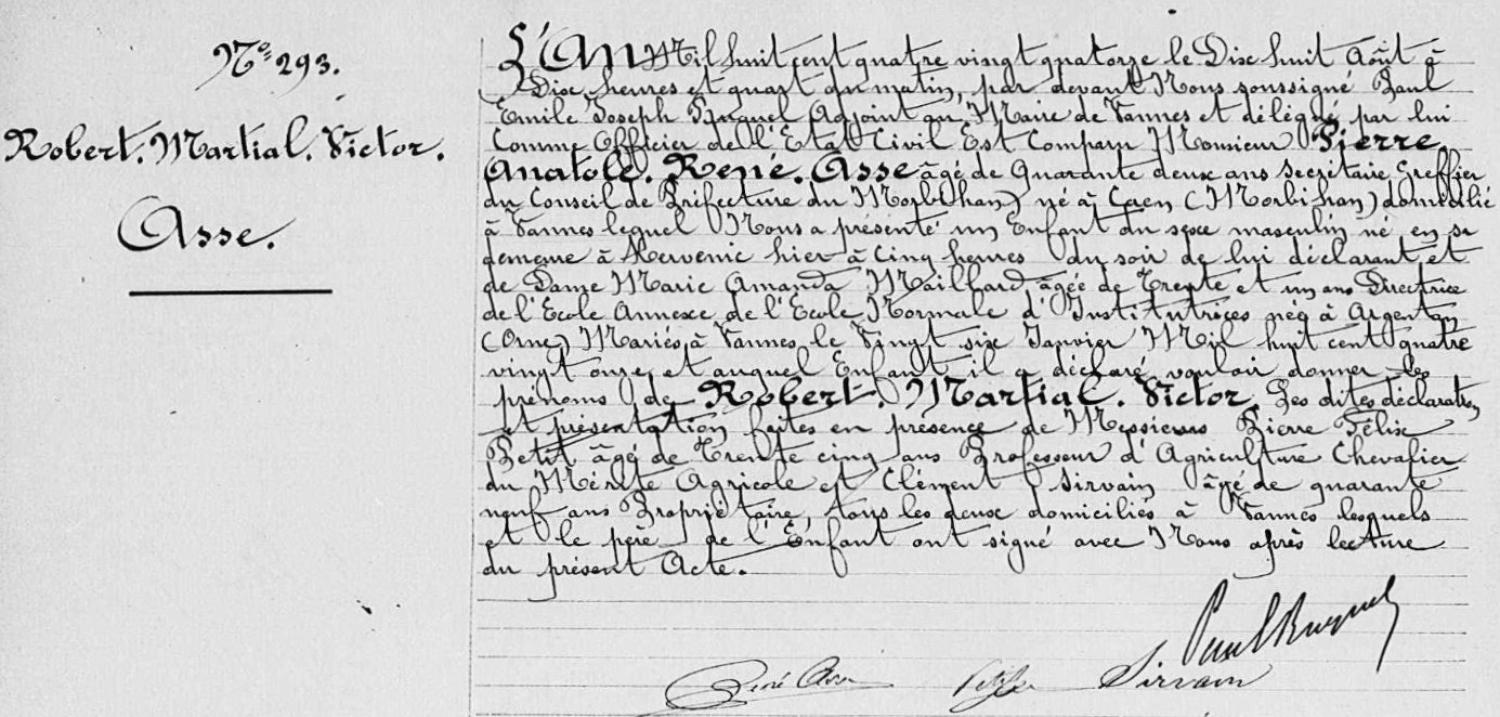 N° 293.
Robert. Martial. Victor.
Asse.
L'An Mil huit cent quatre vingt quatorze le Dix huit Août à
Dix heures et quart du matin, par devant Nous soussigné Paul
Emile Joseph Burguel Adjoint au Maire de Vannes et délégué par lui
Comme Officier de l'Etat Civil Est Comparu Monsieur Pierre.
Anatole. René. Asse âgé de Quarante deux ans Secrétaire Greffier
du Conseil de Préfecture du Morbihan) né à Caen (Morbihan) domicilié
à Vannes lequel Nous a présenté un Enfant du sexe masculin né en sa
demeure à Kervenic hier à Cinq heures du soir de lui déclarant et
de Dame Marie Amanda Maillard âgée de Trente et un ans Directrice
de l'Ecole Annexe de l'Ecole Normale d'Institutrices née à Argentan
(Orne) Mariés à Vannes le Vingt six Janvier Mil huit cent quatre
vingt onze, et auquel Enfant il a déclaré vouloir donner les
prénoms de Robert. Martial. Victor. Les dites déclaration
et présentation faites en présence de Messieurs Pierre Félix
Petit âgé de Trente cinq ans Professeur d'Agriculture Chevalier
du Mérite Agricole et Clément Sirvain âgé de quarante
neuf ans Propriétaire, tous les deux domiciliés à Vannes lesquels
et le père de l'Enfant ont signé avec Nous après lecture
du présent Acte.
René Asse Sirvain Paul